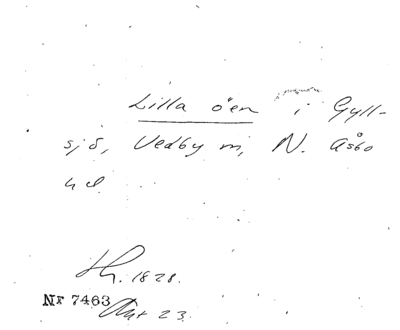 Lilla öen i Gyll-
sjö, Vedby m, N. Åsbo
hd
1828.
Nr 7463
23.